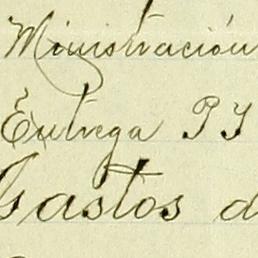 Ministración
Entrega P I
Gastos d